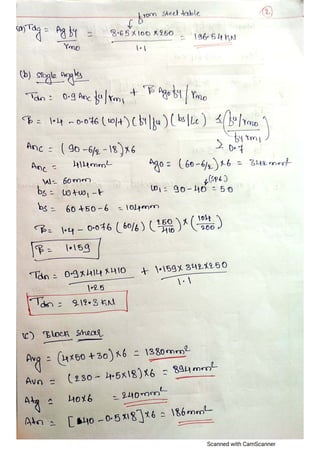 from steel table
(2.)
(a) Tdg = Ag fy / γmo = 8.65 × 100 × 250 / 1.1 = 196.54 kN
(b) Single Angles
Tdn = 0.9 Anc fu / γm1 + β Ago fy / γmo
β = 1.4 - 0.076 (w/t) (fy/fu) (bs/Lc) ≤ (fu γmo / fy γm1)
≥ 0.7
Anc = (90 - 6/2 - 18) × 6
Anc = 414 mm² Ago = (60 - 6/2) × 6 = 342 mm²
w = 60mm w1 = 90 - 40 = 50
bs = w + w1 - t
bs = 60 + 50 - 6 = 104mm
β = 1.4 - 0.076 (60/6) (250/410) × (104/200)
β = 1.159
Tdn = 0.9 × 414 × 410 / 1.25 + 1.159 × 342 × 250 / 1.1
Tdn = 212.3 kN
(c) Block shear
Avg = (4×50 + 30) × 6 = 1380mm²
Avn = (230 - 4.5×18) × 6 = 894mm²
Atg = 40×6 = 240mm²
Atn = [40 - 0.5×18] × 6 = 186mm²
Scanned with CamScanner